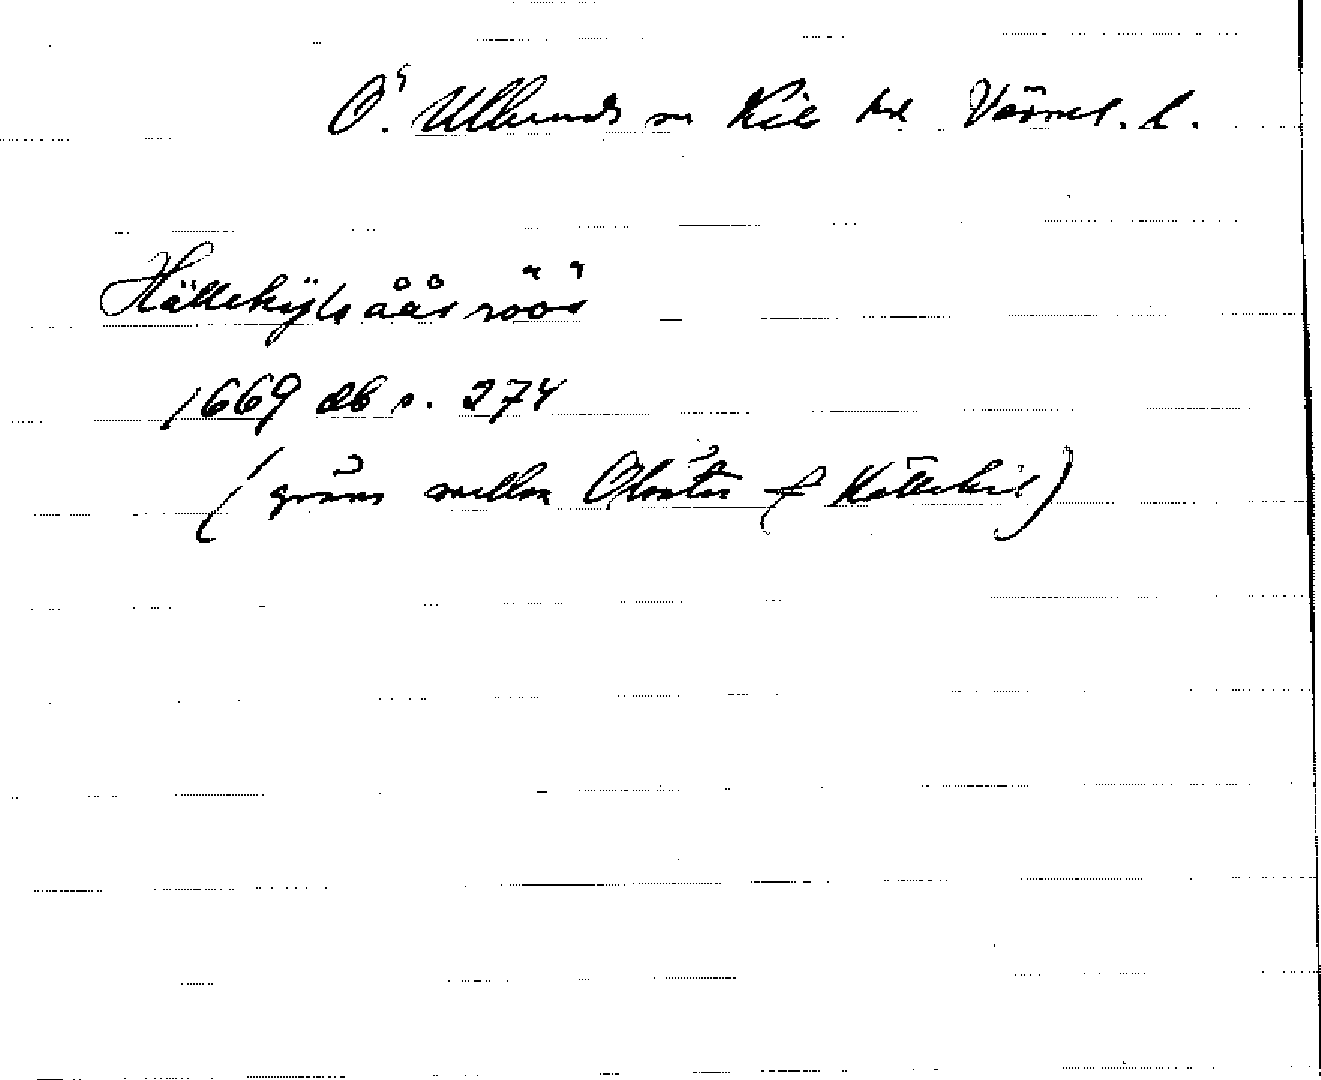 Ö. Ullerud sn Kils hd Värml. l.
Hällekÿls åås röös
1669 db s. 274
(gräns mellan Olsäter & Källekil)